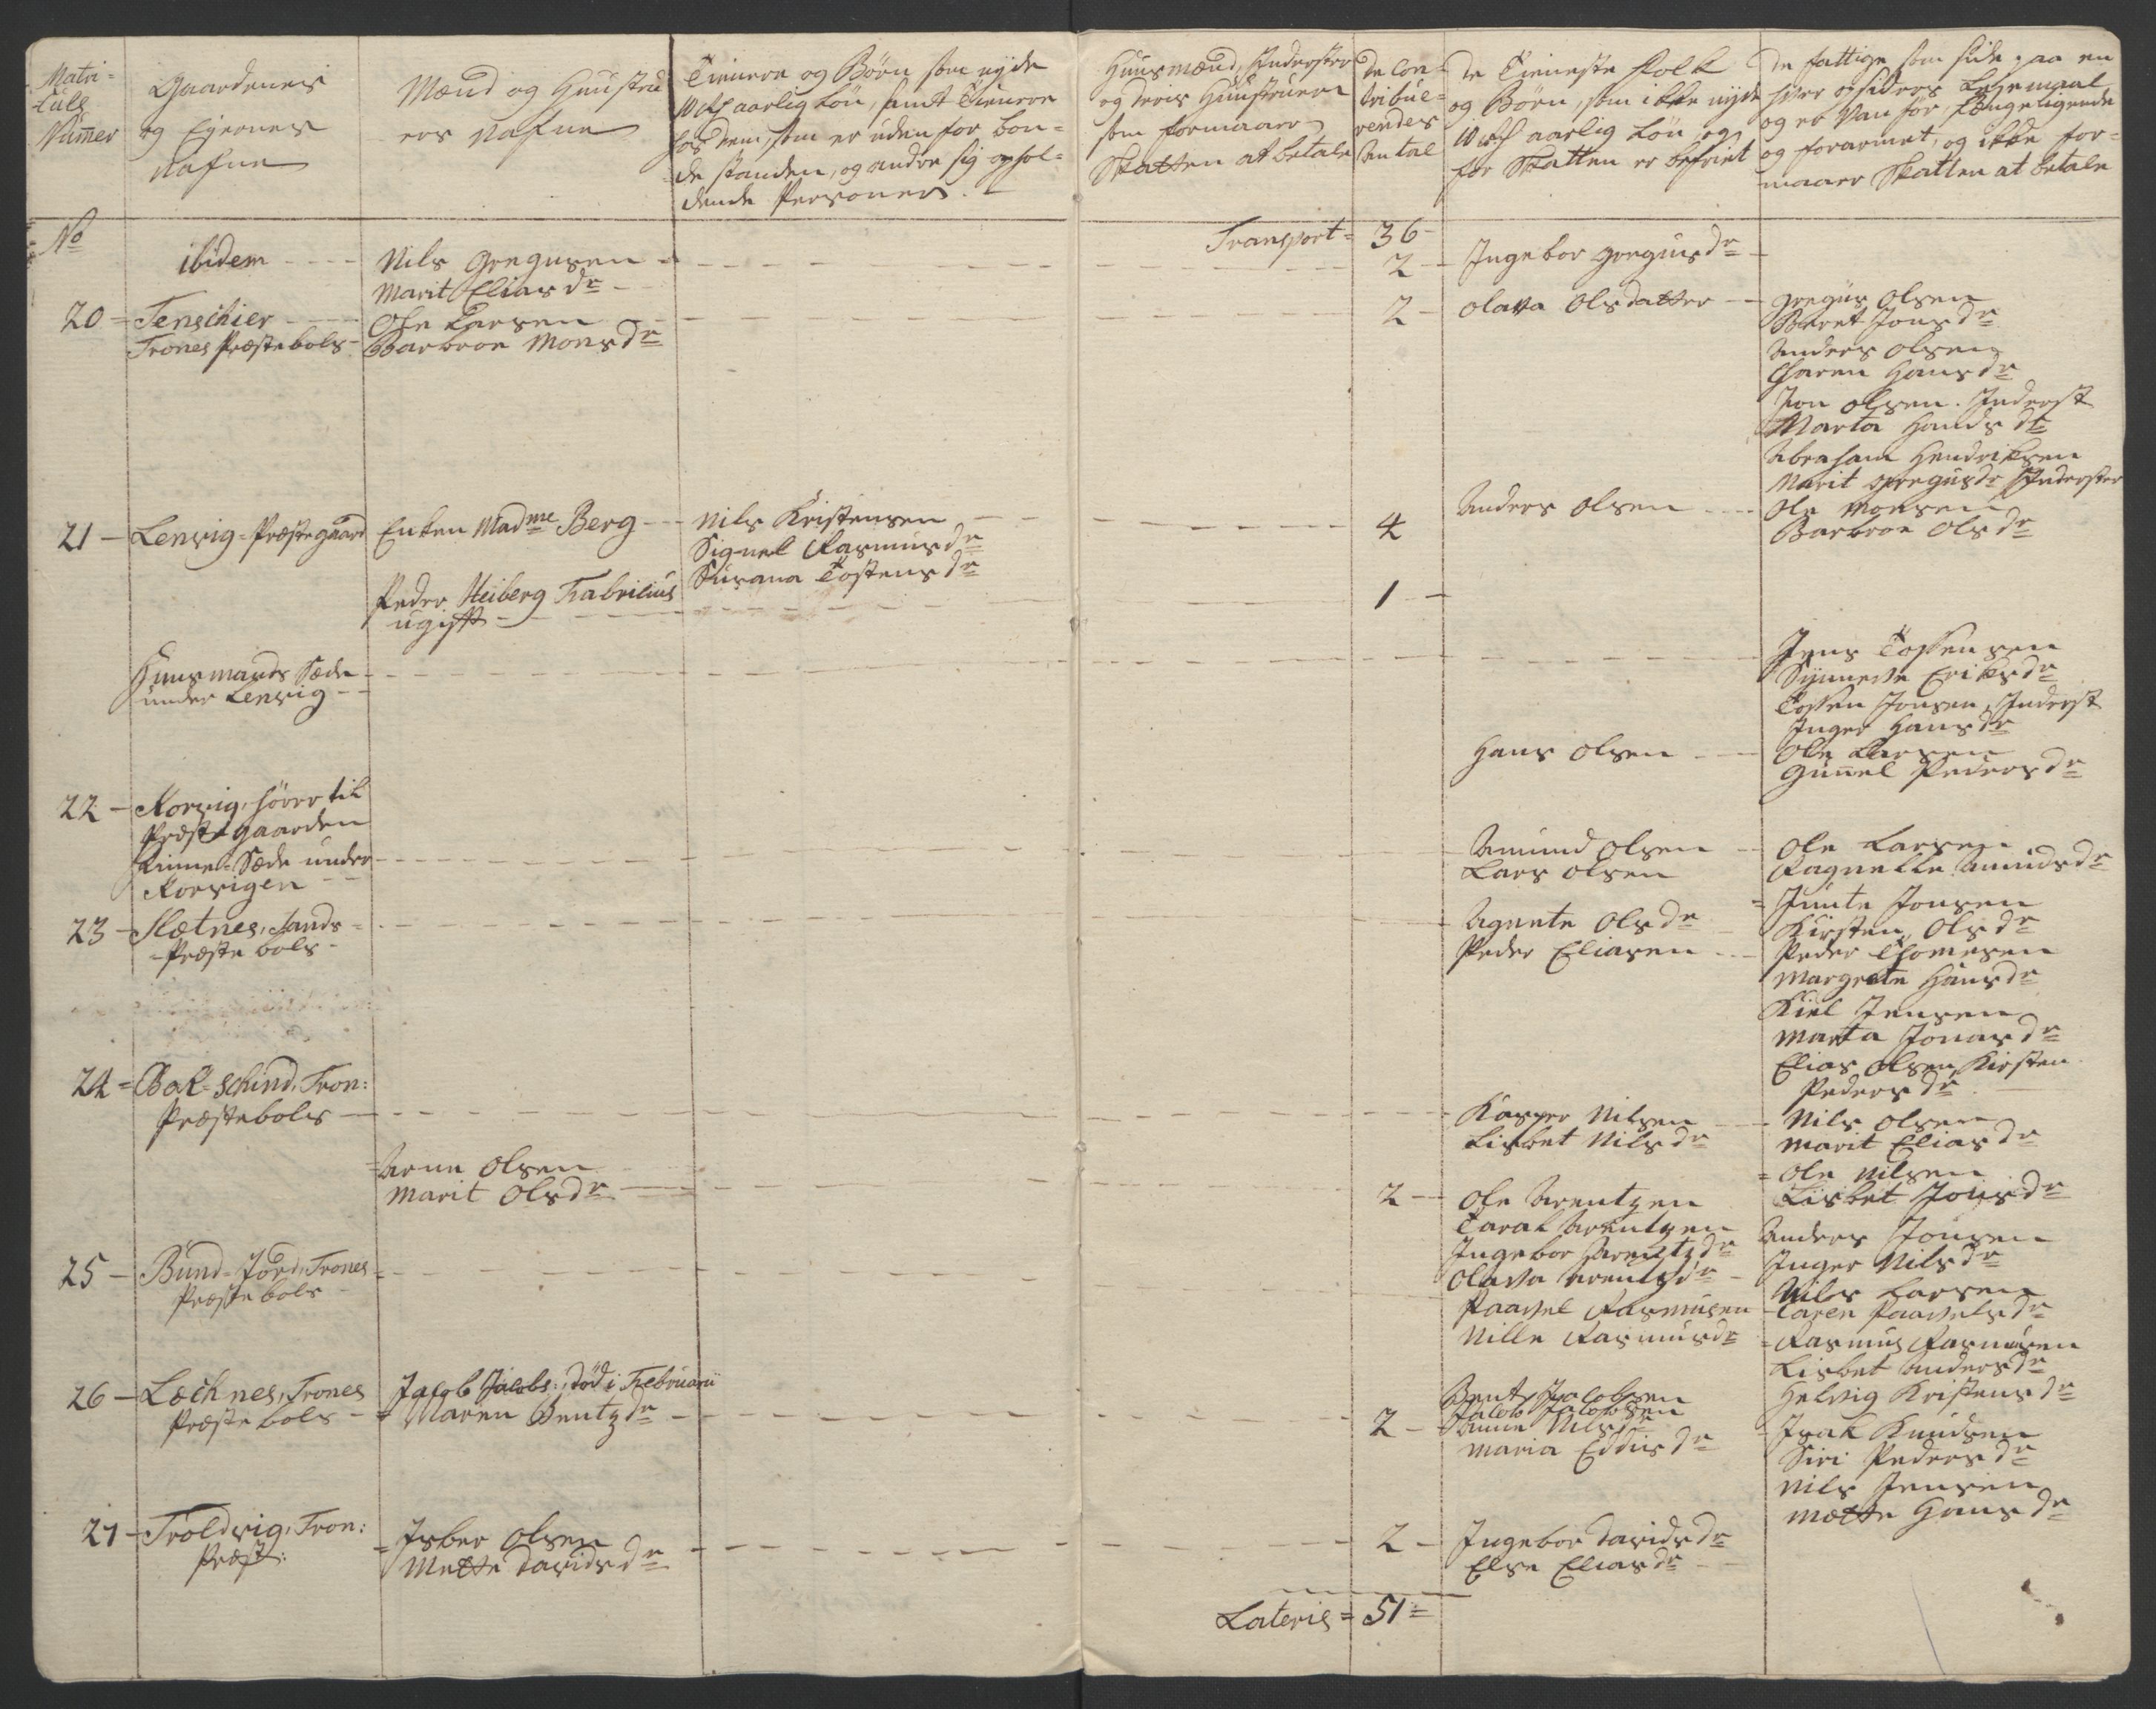 Matri-
Culs
Numer
Gaardenes
og Eyernes
Nafne
Mænd og Hustru
ers Nafne
Tienere og Børn som nyde
aarlig Løn, samt Tienere
hos dem, som er uden for bon-
de standen, og andre sig ophol-
dende Personer.
Huusmænd, Inderster
og deris Hustruer
som formaaer
Skatten at betale
De Con-
tribue-
rendes
Antal
De Tieneste Folk
og Børn, som ikke nyde
aarlig Løn og
for Skatten er befriet
De fattige som side paa en
og er Vanfør, sængeliggende
og forarmet, og ikke for-
maaer Skatten at betale
No
Transport = 36
ibidem
Nils Gregusen
Marit Eliasdr
2
Ingebor Gregusdr
20 = Tenschier
Trones Præstebols
Ole Larsen
Barbroe Monsdr
2
Olava Olsdatter
Gregus Olsen
Beret Jonsdr
Anders Olsen
Charen Hansdr
Jon Olsen. Inderst
Marta Handsdr
Abraham Hendriksen
Marit Gregusdr Inderster
21 - Lenvig = Præstegaard
Enken Madme Berg
Nils Kristensen
Signel Rasmusdr
Susana Tostensdr
4
Anders Olsen
Ole Monsen
Barbroe Olsdr
Peder Heiberg Fabricius
ugift
1
Huusmands Sæde
under Lenvig
Jens Tostensen
Synneve Eriksdr
Tosten Jonsen, Inderst
Inger Hansdr
Hans Olsen
Ole Larsen
Gunnel Pedersdr
22 - Korvig, hører til
Præstegaarden
Sæde under
Korvigen
Amund Olsen
Lars Olsen
Ole Larsen
Ragnelle Amundsdr
23 - Slætnes, Sands
Præstebols
Agnete Olsdr
Peder Eliasen
Junte Jonsen
Kirsten Olsdr
Peder Thomesen
Margrete Hansdr
Kiel Jensen
Marta Jonasdr
Elias Olsen, Kirsten
Pedersdr
24 = Bak-schind, Tron:
Præstebols
Kasper Nilsen
Lisbet Nilsdr
Nils Olsen
Marit Eliasdr
= Ole Nilsen
Lisbet Jonsdr
Arnn Olsen
Marit Olsdr
2
Ole Arentzen
Taral Arentzen
Ingebor Arentzdr
Olava Arentzdr
Anders Jonsen
Inger Nilsdr
25 - Bund-Jord, Trones
Præstebols
Paavel Rasmusen
Nille Rasmusdr
Nils Larsen
Caren Paavelsdr
= Rasmus Rasmusen
Lisbet Andersdr
26 - Læchnes, Trones
Præstebols
Jacob Jacobs: død i Februarii
Maren Bentzdr
2
Bent Jacobsen
Jacob Jacobsen
Anne Nilsdr
Maria Eddisdr
Helvig Kristensdr
Isak Knudsen
Siri Pedersdr
Nils Jensen
Mætte Hansdr
27 - Troldvig, Tron:
Præst:
Isber Olsen
Mette Davidsdr
2
Ingebor Davidsdr
Else Eliasdr
Lateris = 51 =